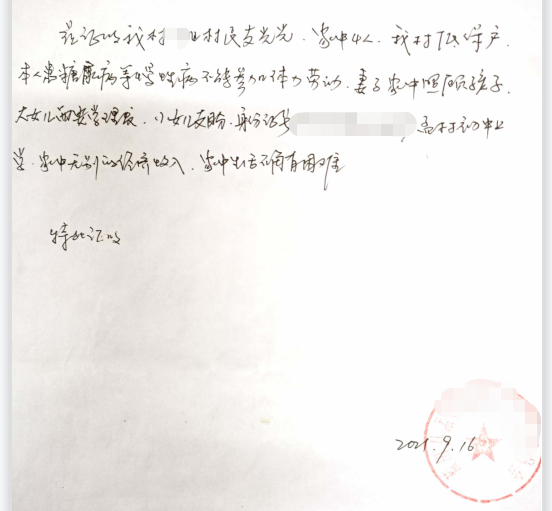 兹证明我村 村民支光光、家中4人、我村低保户.
本人患糖尿病等慢性病不能参加体力劳动. 妻子家中照顾孩子.
大女儿西安学理发. 小女儿支盼. 身份证号 孟村初中上
学. 家中无别的经济收入、家中生活确有困难
特此证明
2021.9.16